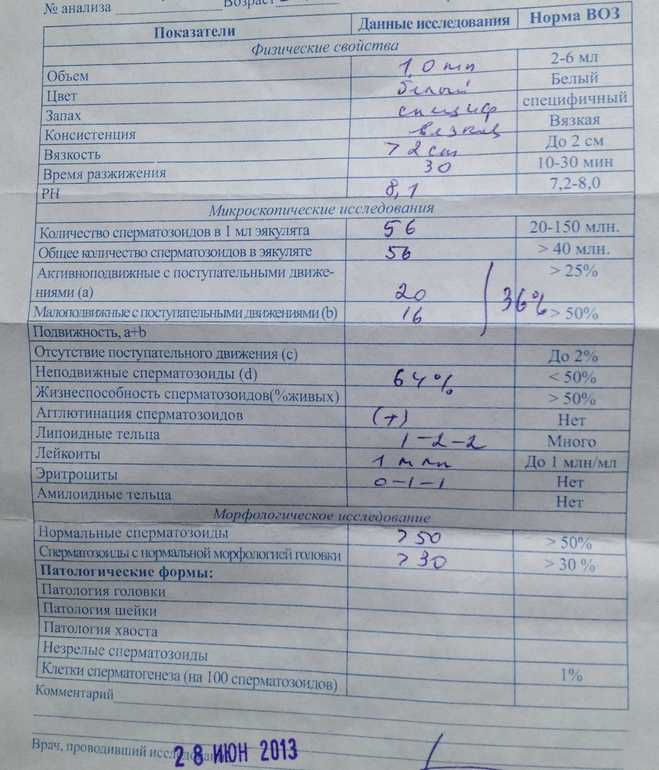 № анализа Возраст
Показатели Данные исследования Норма ВОЗ
Физические свойства
Объем 1,0 мл 2-6 мл
Цвет белый Белый
Запах специф специфичный
Консистенция вязкая Вязкая
Вязкость >2 cm До 2 см
Время разжижения 30 10-30 мин
PH 8,1 7,2-8,0
Микроскопические исследования
Количество сперматозоидов в 1 мл эякулята 56 20-150 млн.
Общее количество сперматозоидов в эякуляте 56 > 40 млн.
Активноподвижные с поступательными движе- > 25%
ниями (a) 20 36%
Малоподвижные с поступательными движениями (b) 16 > 50%
Подвижность, a+b
Отсутствие поступательного движения (c) До 2%
Неподвижные сперматозоиды (d) 64% < 50%
Жизнеспособность сперматозоидов(%живых) > 50%
Агглютинация сперматозоидов (+) Нет
Липоидные тельца 1-2-2 Много
Лейкоиты 1 млн До 1 млн/мл
Эритроциты 0-1-1 Нет
Амилоидные тельца Нет
Морфологическое исследование
Нормальные сперматозоиды >50 > 50%
Сперматозоиды с нормальной морфологией головки >30 > 30 %
Патологические формы:
Патология головки
Патология шейки
Патология хвоста
Незрелые сперматозоиды
Клетки сперматогенеза (на 100 сперматозоидов) 1%
Комментарий
Врач, проводивший 28 ИЮН 2013